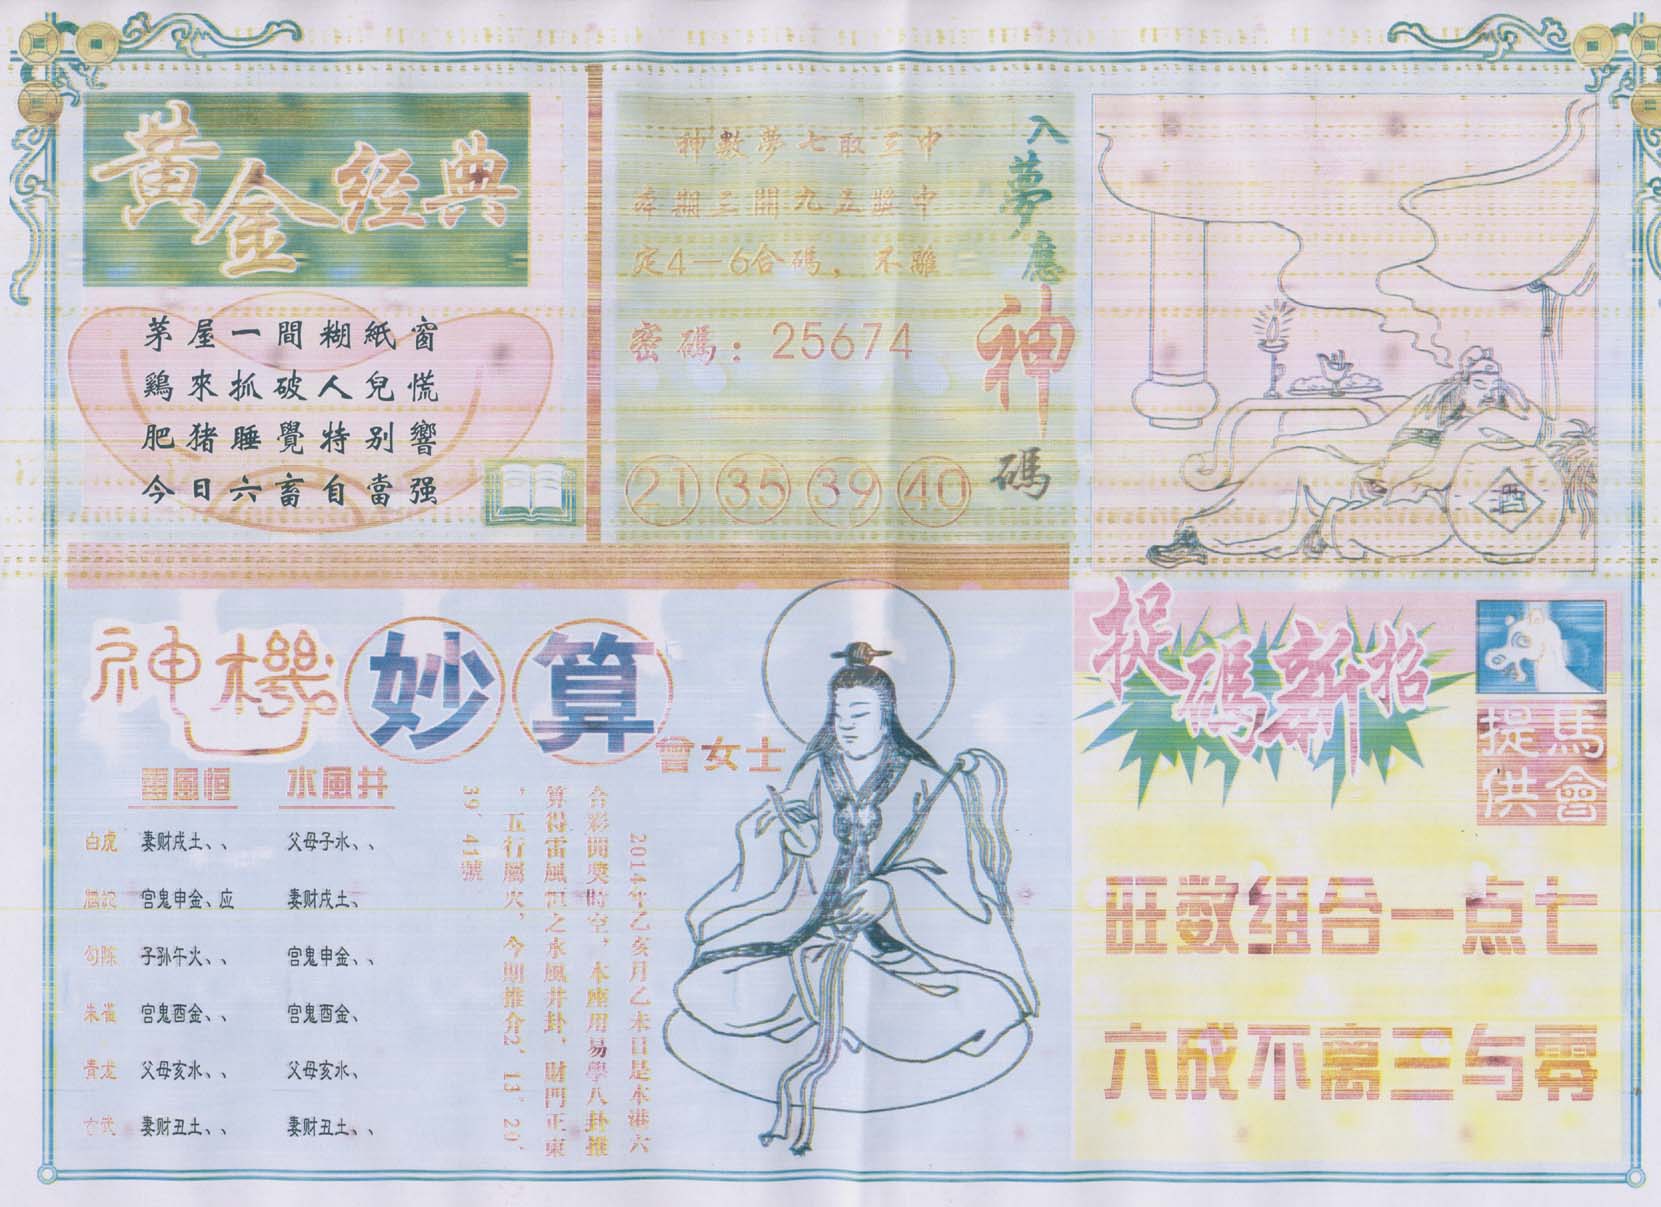 黃金经典
茅屋一間糊紙窗
鷄來抓破人兒慌
肥猪睡覺特别響
今日六畜自當强
入夢應神碼
神數夢七取三中
本期三開九五獎中
定4—6合碼，不離
密碼：25674
21 35 39 40
酒
神機妙算
曾女士
雷風恒 水風井
白虎 妻财戌土、、 父母子水、、
螣蛇 官鬼申金、应 妻财戌土、
勾陈 子孙午火、、 官鬼申金、、
朱雀 官鬼酉金、、 官鬼酉金、
青龙 父母亥水、、 父母亥水、
玄武 妻财丑土、、 妻财丑土、、
2014年乙亥月乙未日是本港六
合彩開獎時空，本座用易學八卦推
算得雷風恒之水風井卦，財門正東
，五行屬火，今期推介2、13、20、
39、41號
捉碼新招
馬會
捉供
旺数组合一点七
六成不离三与零